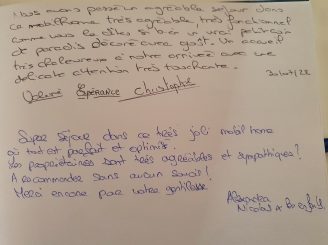 Nous avons passé un agréable séjour dans
ce mobilhome très agréable très fonctionnel
comme vous le dites si bien un vrai petit coin
de paradis décoré avec goût. Un accueil
très chaleureux à notre arrivée avec une
délicate attention très touchante.
30/07/22
Valérie Espérance Christophe
Super Séjour dans ce très joli mobil home
où tout est parfait et optimisé.
Les propriétaires sont très agréables et sympathiques!
A recommander sans aucun souci!
Merci encore pour votre gentillesse
Alexandra
Nicolas &